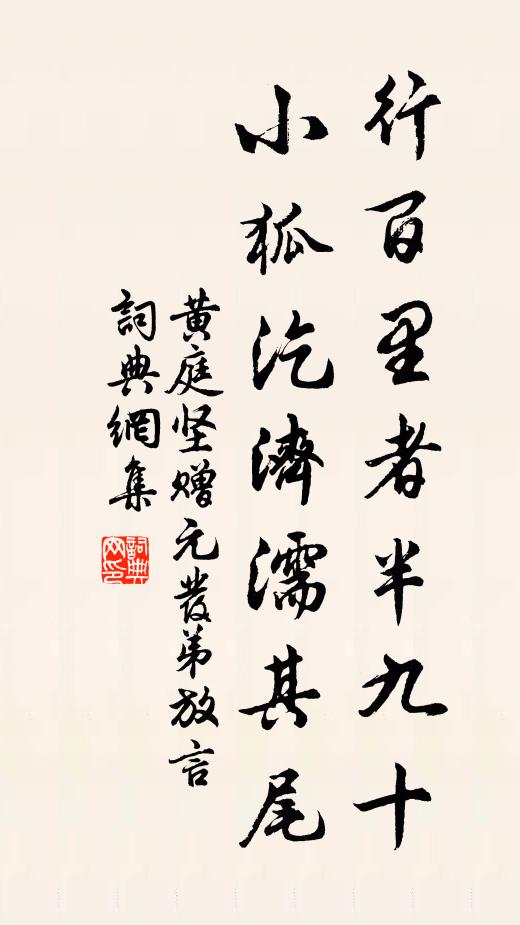 行百里者半九十
小狐汔濟濡其尾
黄庭坚赠元發弟放言
詞典網集
詞典网印